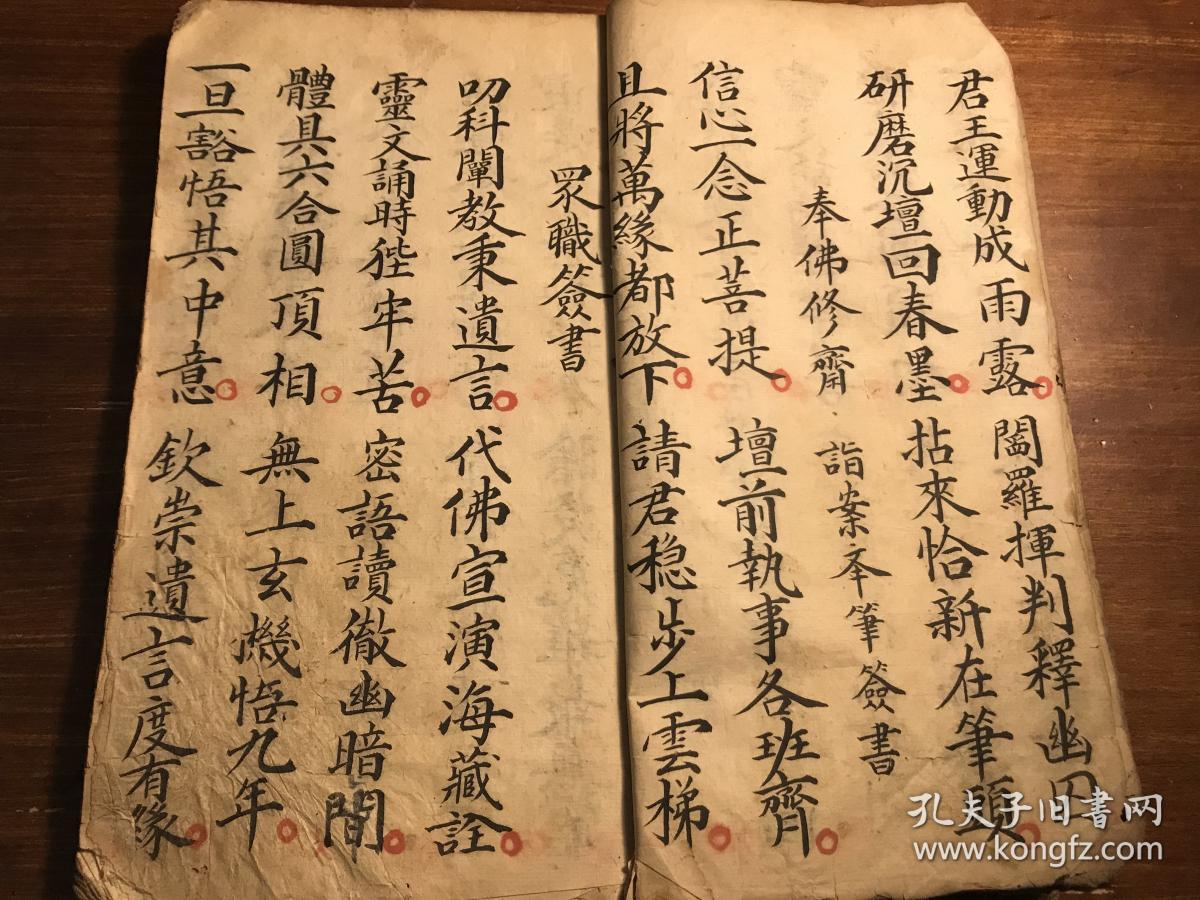 君王運動成雨露 閻羅揮判釋幽囚
研磨沉壇回春墨 拈來恰新在筆頭
奉佛修齋 詣案夲筆簽書
信心一念正菩提 壇前執事各班齊
且將萬緣都放下 請君穏步上雲梯
眾職簽書
叨科闡教秉遺言 代佛宣演海藏詮
靈文誦時狴牢苦 密語讀徹幽暗間
體具六合圓頂相 無上玄機悟九年
一旦豁悟其中意 欽崇遺言度有緣
孔夫子旧书网
www.kongfz.com